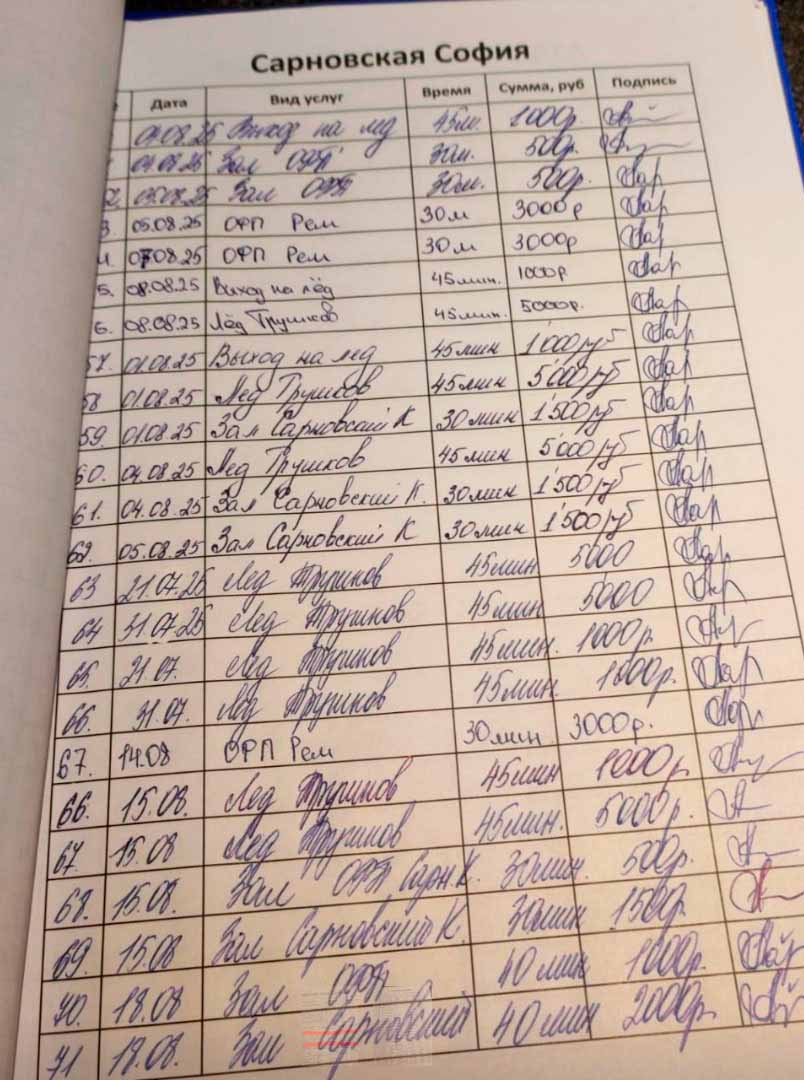 Сарновская София
Дата Вид услуг Время Сумма, руб Подпись
04.08.25 Выход на лед 45м. 1000р.
04.08.25 Зал ОФП 30м. 500р.
2. 05.08.25 Зал ОФП 30м. 500р.
3. 05.08.25 ОФП Рем 30м 3000р
4. 07.08.25 ОФП Рем 30м 3000р
5. 08.08.25 Выход на лёд 45мин. 1000р
6. 08.08.25 Лёд Трушков 45мин. 5000р.
57. 01.08.25 Выход на лед 45мин 1'000руб
58 01.08.25 Лед Трушков 45мин 5'000руб
59. 01.08.25 Зал Сарновский К 30мин 1'500руб
60. 04.08.25 Лед Трушков 45мин 5'000руб
61. 04.08.25 Зал Сарновский К. 30мин 1'500руб
62. 05.08.25 Зал Сарновский К 30мин 1'500руб
63 21.07.25 Лед Трушков 45мин 5000
64 31.07.25 Лед Трушков 45мин 5000
65. 21.07. Лед Трушков 45мин. 1000р.
66. 31.07. Лед Трушков 45мин. 1000р.
67. 14.08 ОФП Рем 30мин 3000р.
66. 15.08. Лед Трушков 45мин 1000р.
67 15.08 Лед Трушков 45мин. 5000р.
68. 15.08. Зал ОФП Сарн К. 30мин. 500р.
69. 15.08 Зал Сарновский К. 30мин 1500р.
70. 18.08 Зал ОФП 40мин 1000р.
71 18.08. Зал Сарновский 40мин 2000р.